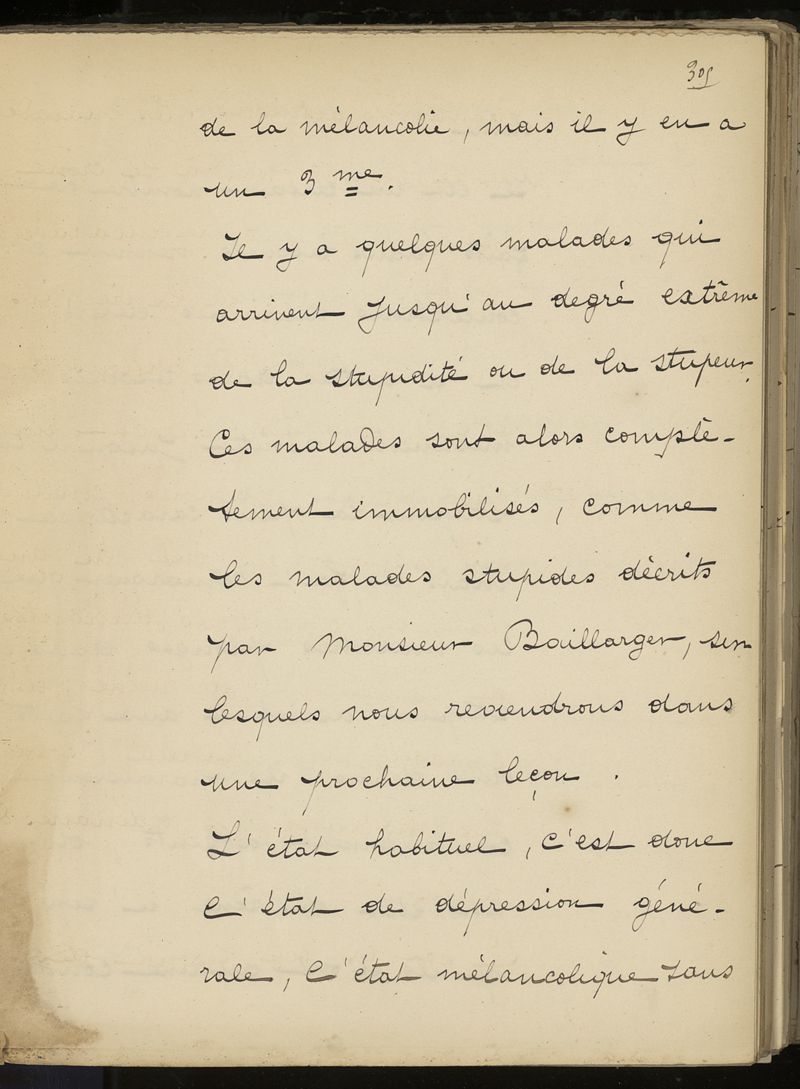 305
de la mélancolie, mais il y en a
un 3me.
Il y a quelques malades qui
arrivent jusqu'au degré extrême
de la stupidité ou de la stupeur.
Ces malades sont alors complè-
tement immobilisés, comme
les malades stupides décrits
par Monsieur Baillarger, sur
lesquels nous reviendrons dans
une prochaine leçon.
L'état habituel, c'est donc
l'état de dépression géné-
rale, l'état mélancolique sans